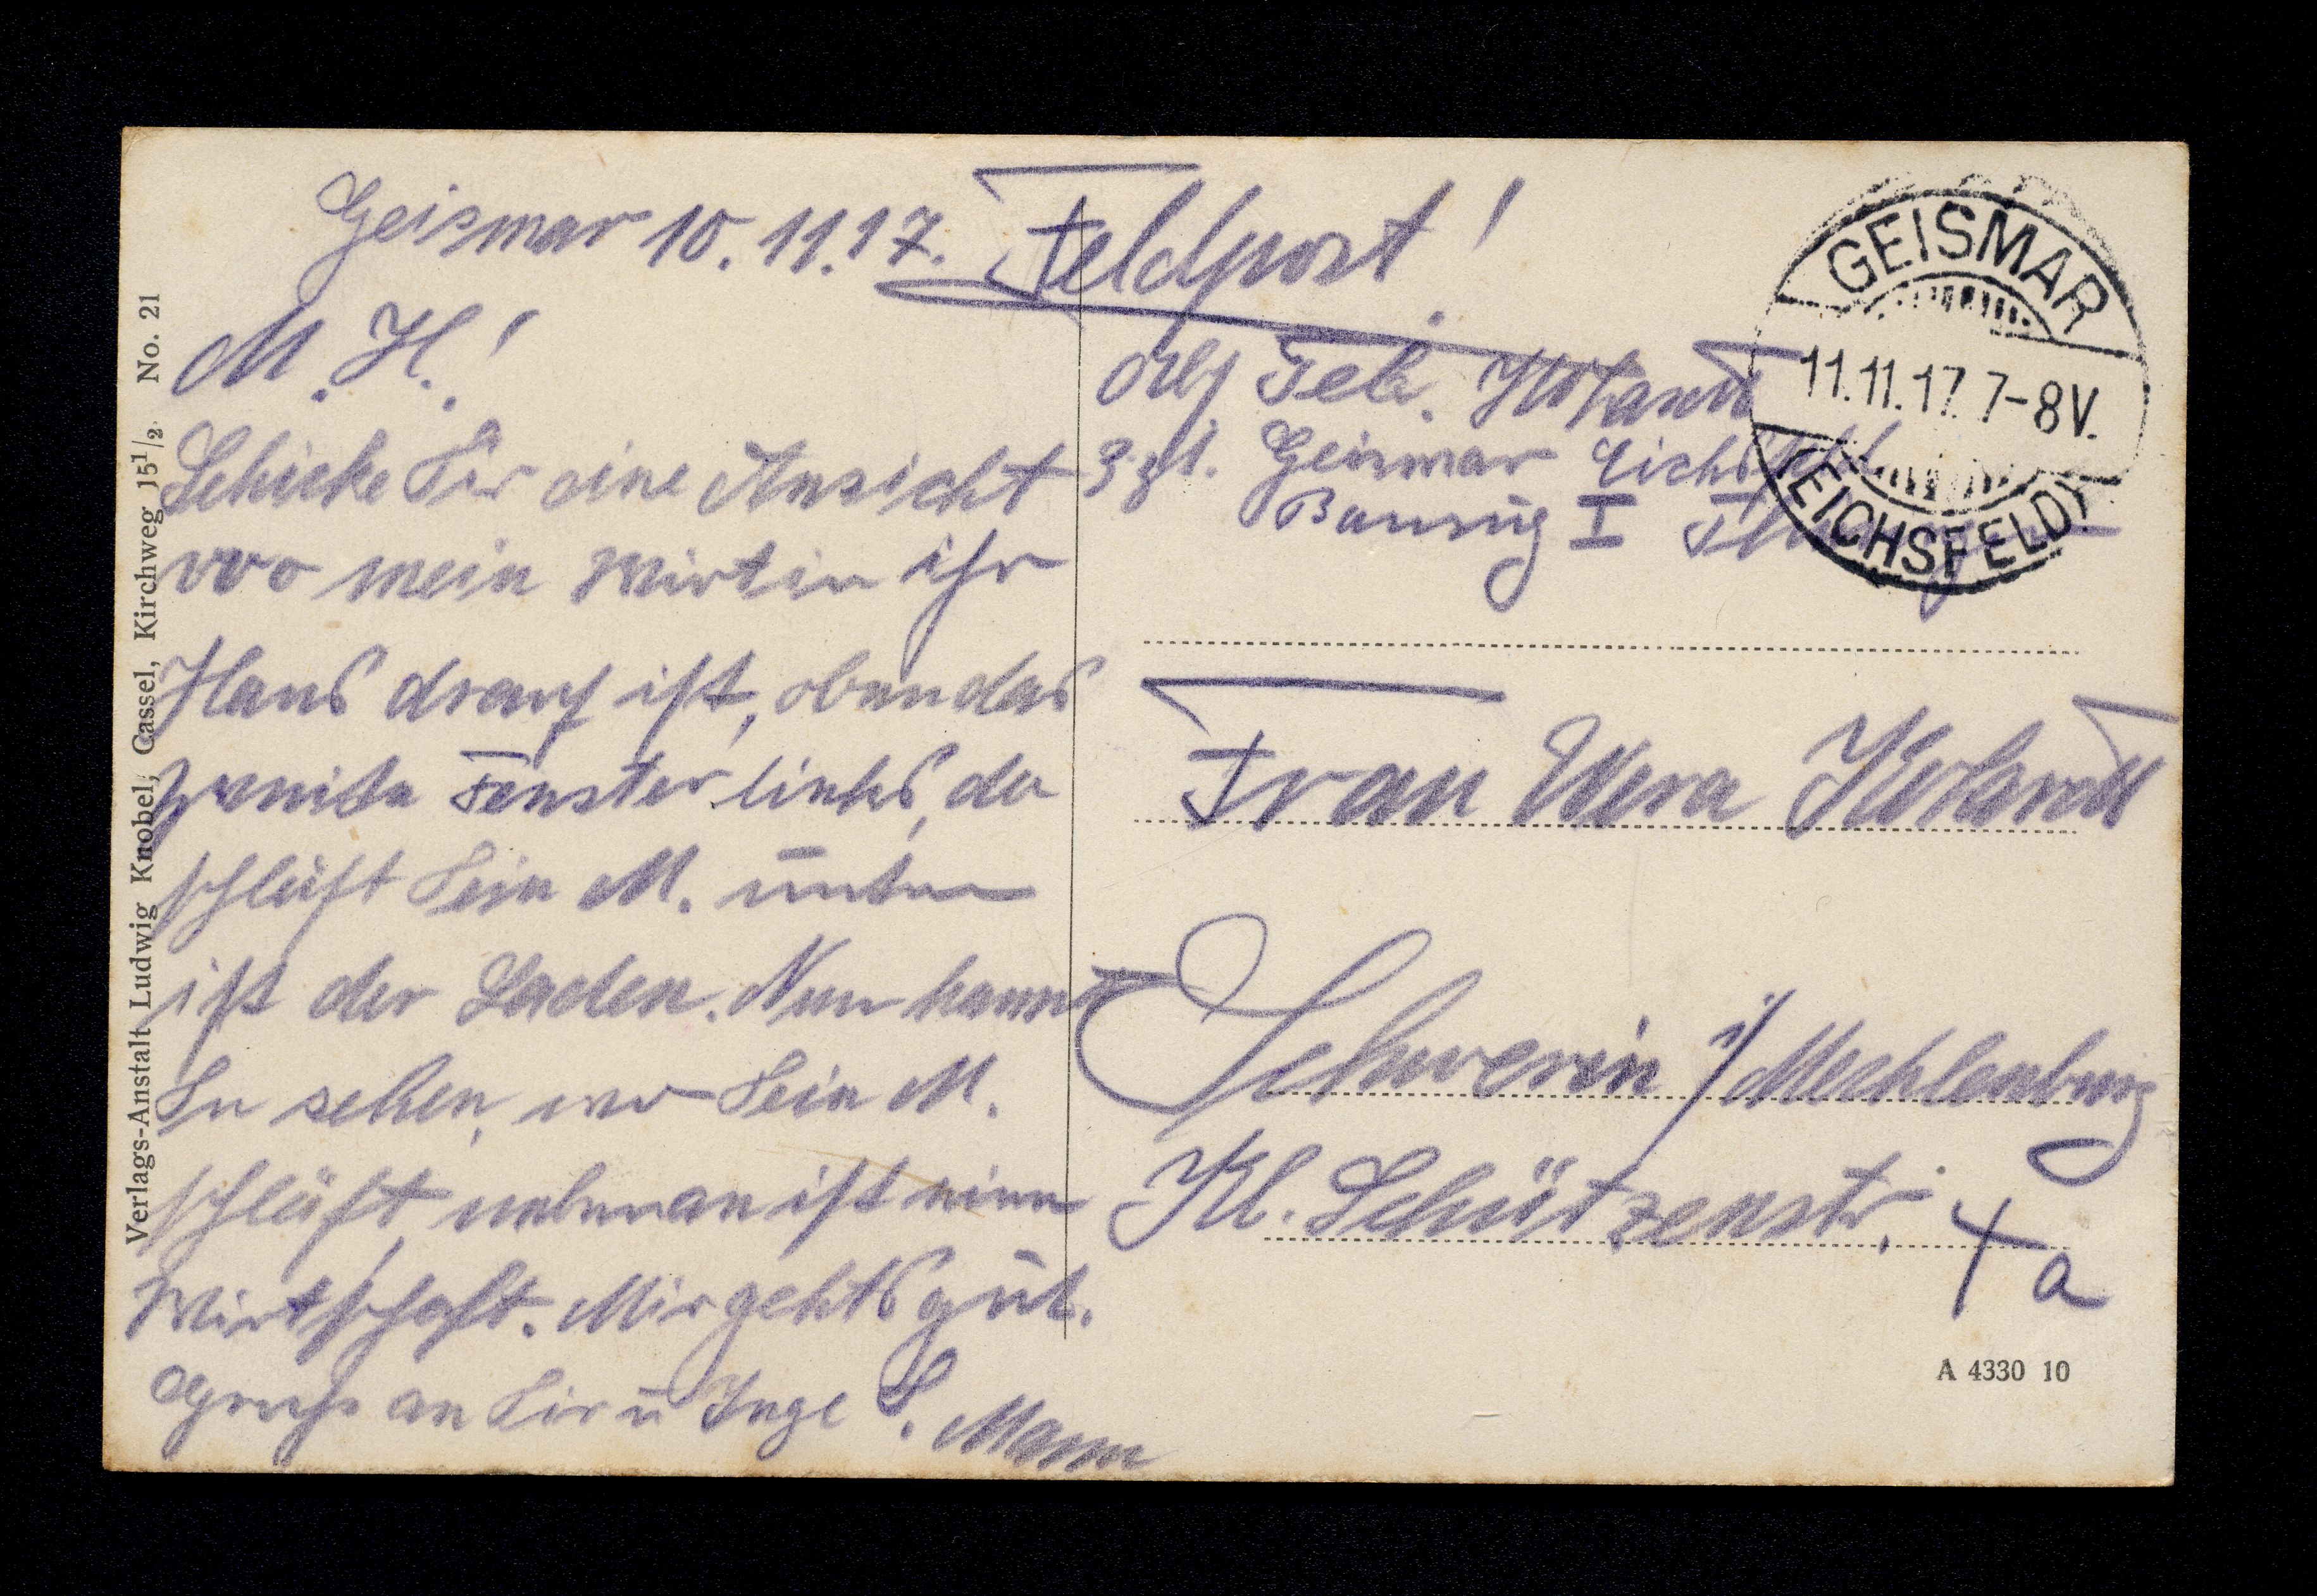 Geismar 10.11.17.
M. H.!
Schicke Dir eine Ansicht
wo mein Wirtin ihr
Haus drauf ist, oben das
zweite Fenster links, da
schläft Dein M. unten
ist der Laden. Nun kann
Du sehen, wo Dein M.
schläft, nebenan ist eine
Wirtschaft. Mir gehts gut.
Gruß an Dir u Inge D. Mann
Feldpost!
Abs Tel.
z. Zt. Geismar Eichsfeld
Bauzug I
GEISMAR
11.11.17. 7-8V.
(EICHSFELD)
Frau Wera
Schwerin i/Mecklenburg
Kl. Schützenstr.
4a
A 4330 10
Verlags-Anstalt Ludwig Knobel, Cassel, Kirchweg 15 1/2. No. 21